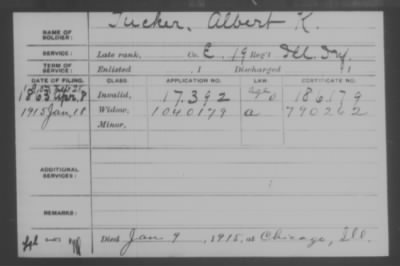 Tucker, Albert K.
NAME OF SOLDIER:
SERVICE: Late rank, Co. E, 19 Reg't Ill. Inf.
TERM OF SERVICE: Enlisted , 1 Discharged , 1
DATE OF FILING. CLASS. APPLICATION NO. LAW. CERTIFICATE NO.
1863 Apr. 8 Invalid, 17.392 186179
1915 Jan. 18 Widow, 1040179 a 790262
Minor,
ADDITIONAL SERVICES:
REMARKS:
Died Jan 9, 1915, at Chicago, Ill.